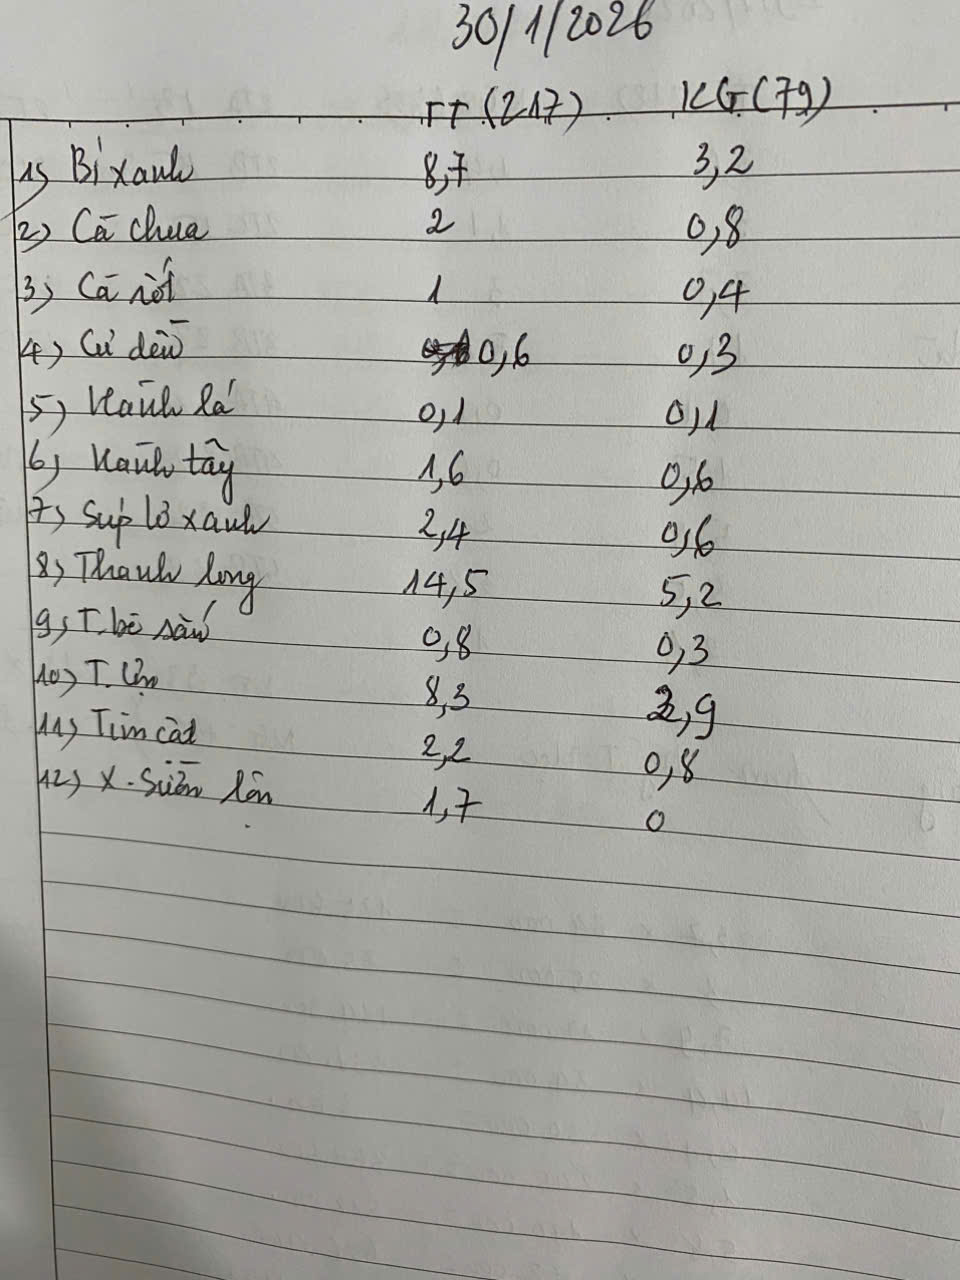 30/1/2026
TT (217) KG (79)
1) Bí xanh 8,7 3,2
2) Cà chua 2 0,8
3) Cà rốt 1 0,4
4) Củ dền 0,6 0,3
5) Hành lá 0,1 0,1
6) Hành tây 1,6 0,6
7) Súp lơ xanh 2,4 0,6
8) Thanh long 14,5 5,2
9) T. bò xấu 0,8 0,3
10) T. lợn 8,3 2,9
11) Tim cật 2,2 0,8
12) X. Sườn lợn 1,7 0